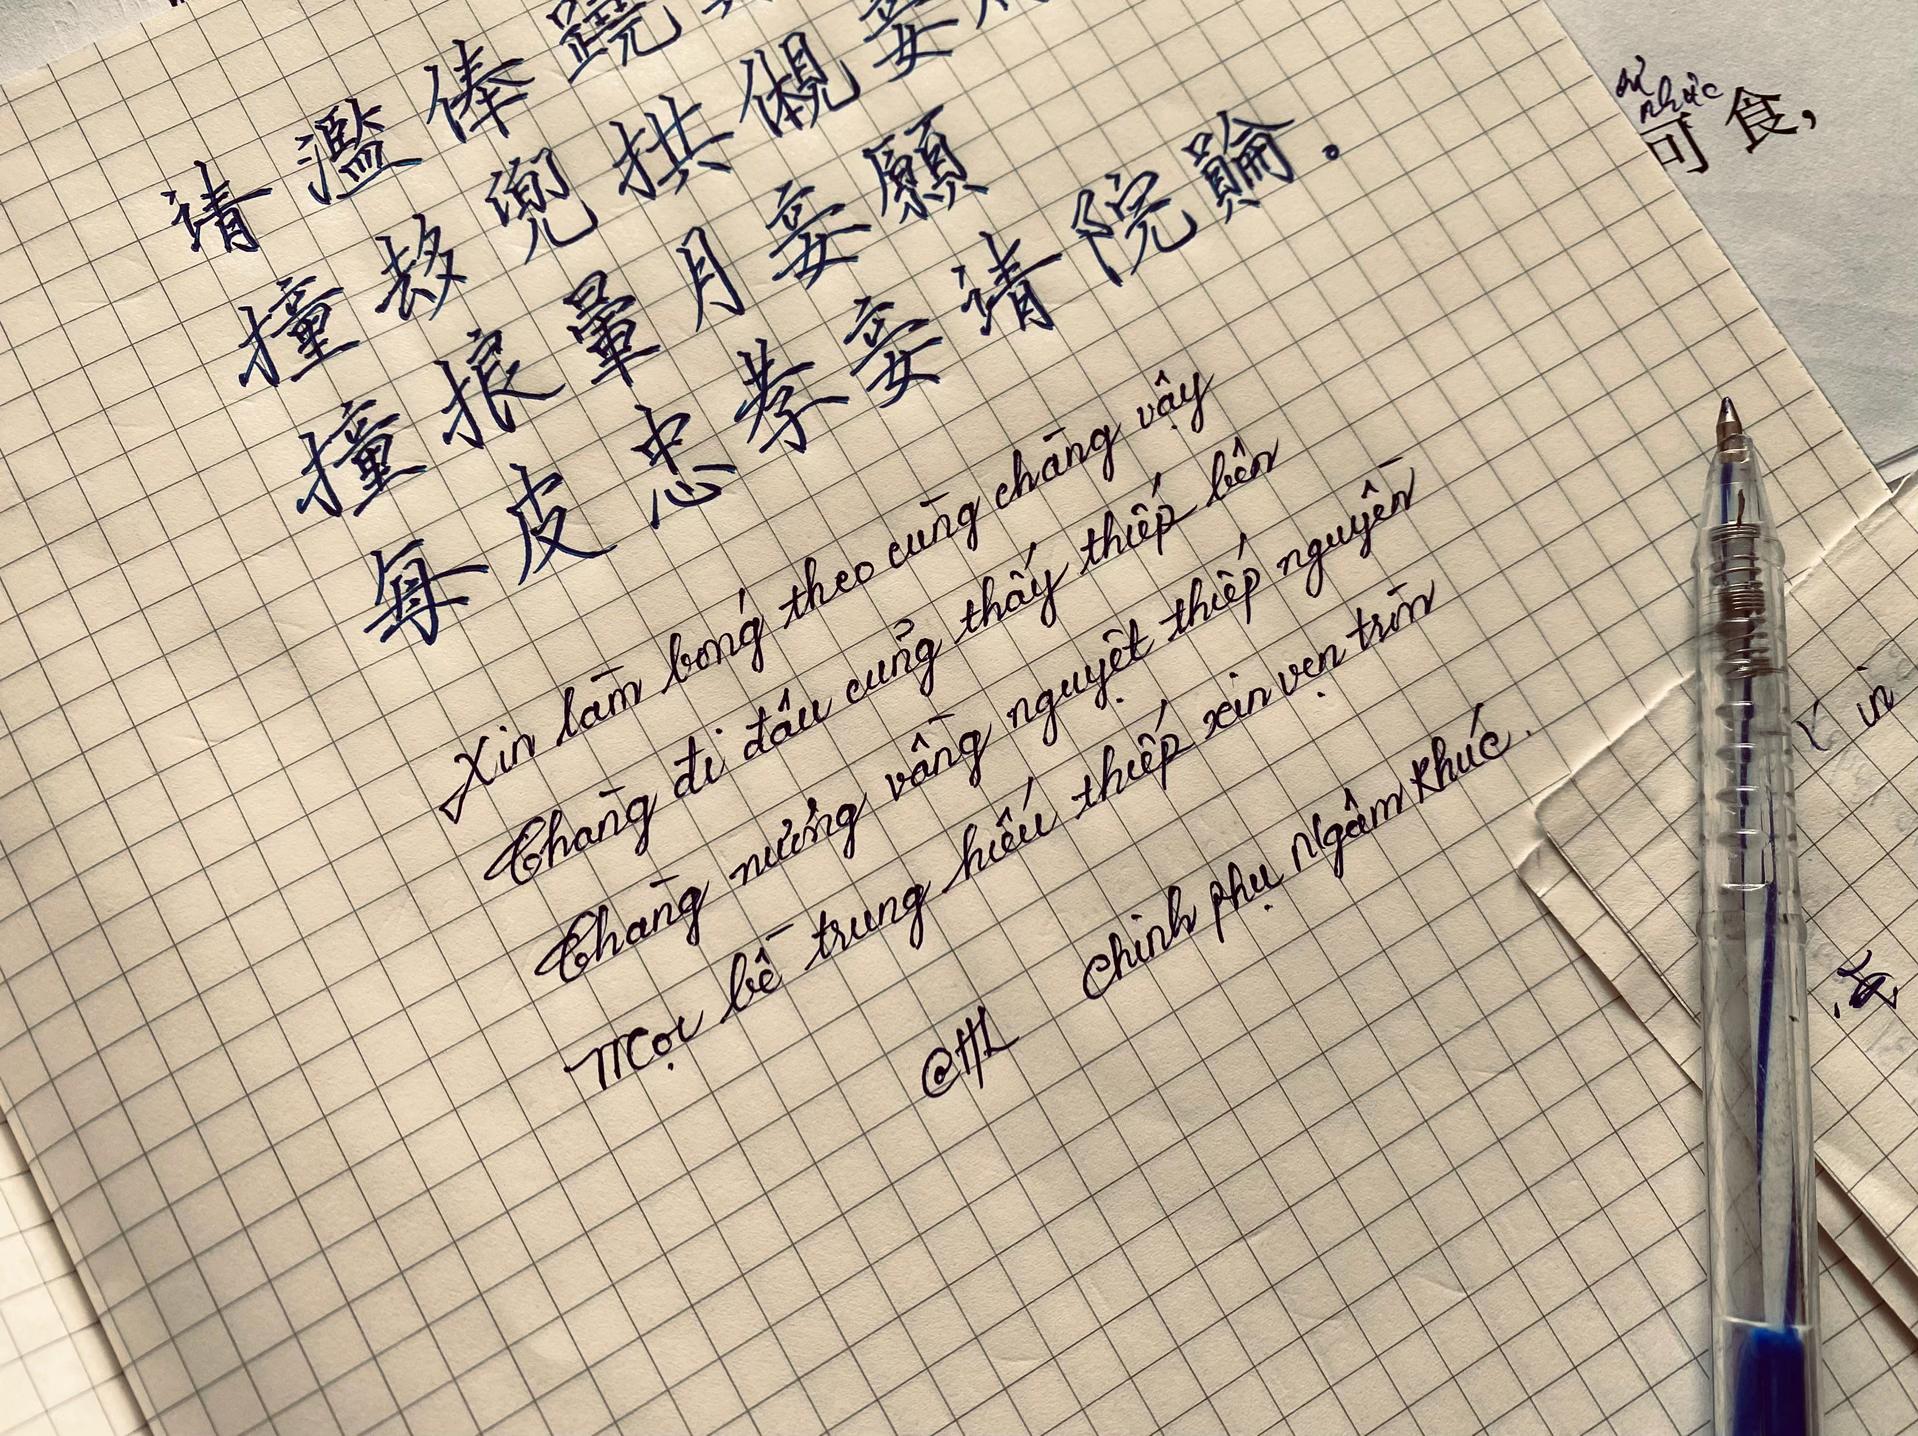 請 濫 俸 蹺
撞 𠫾 兜 拱 𫌠 妾
撞 暈 月 妾 願
每 皮 忠 孝 妾 請 院 𧷺。
Xin làm bóng theo cùng chàng vậy
Chàng đi đâu cũng thấy thiếp bên
Chàng nương vầng nguyệt thiếp nguyền
Mọi bề trung hiếu thiếp xin vẹn tròn
Chinh phụ Ngâm khúc.
@HL
nhức
可食,